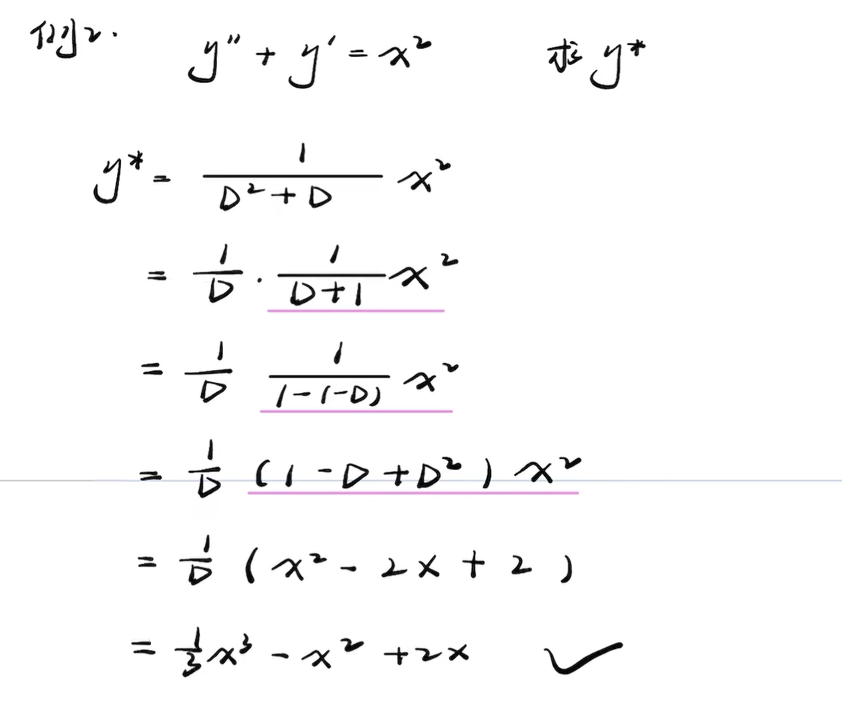 例2. y'' + y' = x² 求 y*
y* = \frac{1}{D² + D} x²
= \frac{1}{D} · \frac{1}{D+1} x²
= \frac{1}{D} \frac{1}{1-(-D)} x²
= \frac{1}{D} (1 - D + D²) x²
= \frac{1}{D} (x² - 2x + 2)
= \frac{1}{3}x³ - x² + 2x ✓